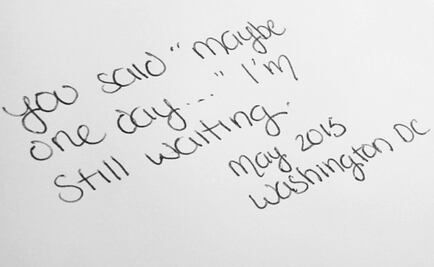 you said "maybe
one day..." I'm
Still waiting.
may 2015
Washington DC